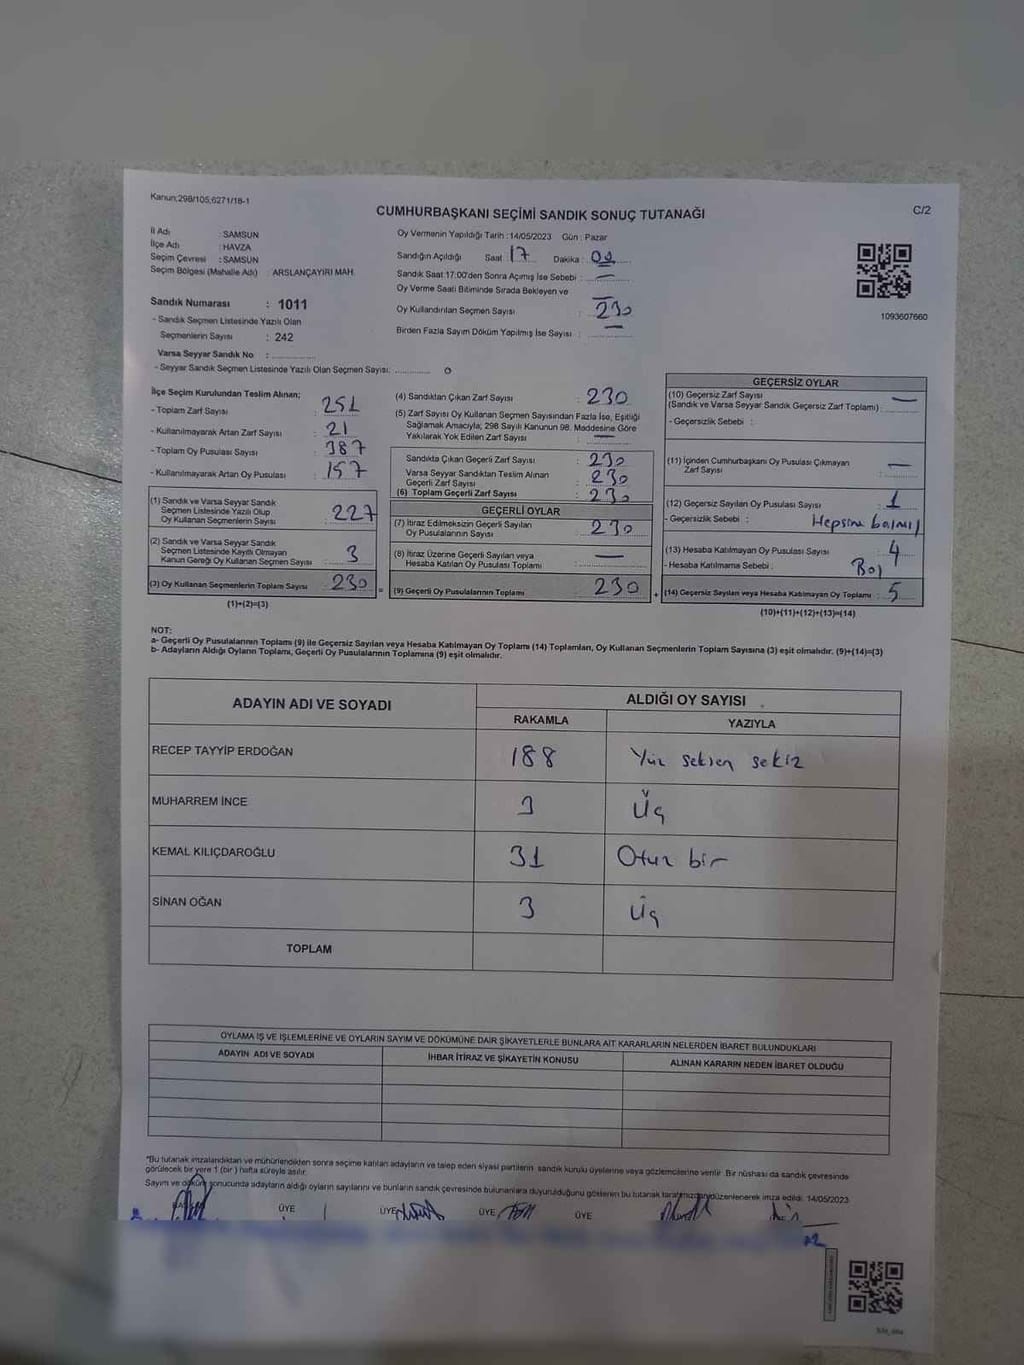 Kanun;298/105,6271/18-1
C/2
CUMHURBAŞKANI SEÇİMİ SANDIK SONUÇ TUTANAĞI
İl Adı : SAMSUN
İlçe Adı : HAVZA
Seçim Çevresi : SAMSUN
Seçim Bölgesi (Mahalle Adı) : ARSLANÇAYIRI MAH.
Sandık Numarası : 1011
- Sandık Seçmen Listesinde Yazılı Olan
Seçmenlerin Sayısı : 242
Varsa Seyyar Sandık No :
- Seyyar Sandık Seçmen Listesinde Yazılı Olan Seçmen Sayısı: 0
Oy Vermenin Yapıldığı Tarih :14/05/2023 Gün : Pazar
Sandığın Açıldığı Saat : 17 Dakika :
Sandık Saat 17:00'den Sonra Açımış İse Sebebi : —
Oy Verme Saati Bitiminde Sırada Bekleyen ve
Oy Kullandırılan Seçmen Sayısı : 230
Birden Fazla Sayım Döküm Yapılmış İse Sayısı : —
1093607660
İlçe Seçim Kurulundan Teslim Alınan;
- Toplam Zarf Sayısı : 251
- Kullanılmayarak Artan Zarf Sayısı : 21
- Toplam Oy Pusulası Sayısı : 387
- Kullanılmayarak Artan Oy Pusulası : 157
(1) Sandık ve Varsa Seyyar Sandık
Seçmen Listesinde Yazılı Olup
Oy Kullanan Seçmenlerin Sayısı : 227
(2) Sandık ve Varsa Seyyar Sandık
Seçmen Listesinde Kayıtlı Olmayan
Kanun Gereği Oy Kullanan Seçmen Sayısı : 3
(3) Oy Kullanan Seçmenlerin Toplam Sayısı : 230
(1)+(2)=(3)
(4) Sandıktan Çıkan Zarf Sayısı : 230
(5) Zarf Sayısı Oy Kullanan Seçmen Sayısından Fazla İse, Eşitliği
Sağlamak Amacıyla; 298 Sayılı Kanunun 98. Maddesine Göre
Yakılarak Yok Edilen Zarf Sayısı : —
Sandıkta Çıkan Geçerli Zarf Sayısı : 230
Varsa Seyyar Sandıktan Teslim Alınan
Geçerli Zarf Sayısı : 230
(6) Toplam Geçerli Zarf Sayısı : 230
GEÇERLİ OYLAR
(7) İtiraz Edilmeksizin Geçerli Sayılan
Oy Pusulalarının Sayısı : 230
(8) İtiraz Üzerine Geçerli Sayılan veya
Hesaba Katılan Oy Pusulası Toplamı : —
= (9) Geçerli Oy Pusulalarının Toplamı : 230
GEÇERSİZ OYLAR
(10) Geçersiz Zarf Sayısı
(Sandık ve Varsa Seyyar Sandık Geçersiz Zarf Toplamı) : —
- Geçersizlik Sebebi :
(11) İçinden Cumhurbaşkanı Oy Pusulası Çıkmayan
Zarf Sayısı : —
(12) Geçersiz Sayılan Oy Pusulası Sayısı : 1
- Geçersizlik Sebebi : Hepsine basmış
(13) Hesaba Katılmayan Oy Pusulası Sayısı : 4
- Hesaba Katılmama Sebebi : Boş
+ (14) Geçersiz Sayılan veya Hesaba Katılmayan Oy Toplamı : 5
(10)+(11)+(12)+(13)=(14)
NOT:
a- Geçerli Oy Pusulalarının Toplamı (9) ile Geçersiz Sayılan veya Hesaba Katılmayan Oy Toplamı (14) Toplamları, Oy Kullanan Seçmenlerin Toplam Sayısına (3) eşit olmalıdır. (9)+(14)=(3)
b- Adayların Aldığı Oyların Toplamı, Geçerli Oy Pusulalarının Toplamına (9) eşit olmalıdır.
ADAYIN ADI VE SOYADI
ALDIĞI OY SAYISI
RAKAMLA YAZIYLA
RECEP TAYYİP ERDOĞAN 188 Yüz seksen sekiz
MUHARREM İNCE 3 Üç
KEMAL KILIÇDAROĞLU 31 Otuz bir
SİNAN OĞAN 3 Üç
TOPLAM
OYLAMA İŞ VE İŞLEMLERİNE VE OYLARIN SAYIM VE DÖKÜMÜNE DAİR ŞİKAYETLERLE BUNLARA AİT KARARLARIN NELERDEN İBARET BULUNDUKLARI
ADAYIN ADI VE SOYADI İHBAR İTİRAZ VE ŞİKAYETİN KONUSU ALINAN KARARIN NEDEN İBARET OLDUĞU
*Bu tutanak imzalandıktan ve mühürlendikten sonra seçime katılan adayların ve talep eden siyasi partilerin sandık kurulu üyelerine veya gözlemcilerine verilir. Bir nüshası da sandık çevresinde
görülecek bir yere 1 (bir ) hafta süreyle asılır.
Sayım ve döküm sonucunda adayların aldığı oyların sayılarını ve bunların sandık çevresinde bulunanlara duyurulduğunu gösteren bu tutanak tarafımızdan düzenlenerek imza edildi. 14/05/2023
ÜYE ÜYE ÜYE ÜYE